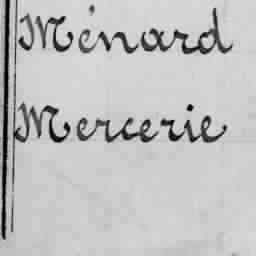 Ménard
Mercerie